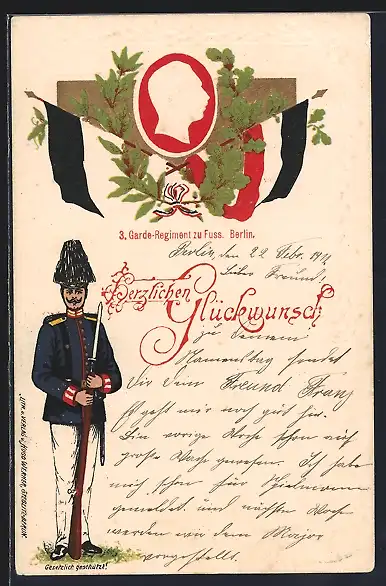 3. Garde-Regiment zu Fuss. Berlin.
Berlin, den 22 Febr.
Lieber Freund!
Herzlichen
Glückwunsch
zu deinem
Namenstag sendet
Dir dein Freund Franz
Es geht mir noch gut hir.
Bin vorige Woche schon auf
große Wache gewesen. Ich habe
mich schon für Spielmann
gemeldet und nächste Woche
werden wir dem Major
vorgestellt.
LITH. u. VERLAG v.
Gesetzlich geschützt!